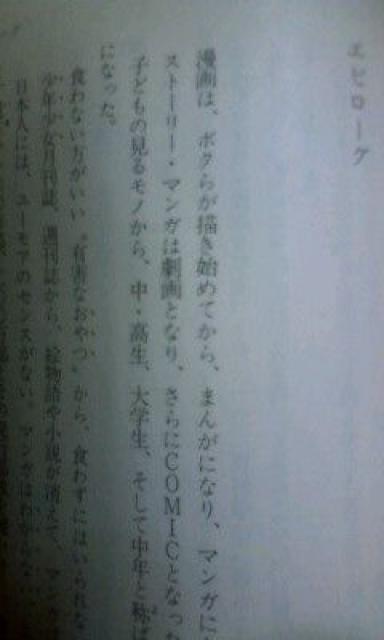 エピローグ
漫画は、ボクらが描き始めてから、まんがになり、マンガに
ストーリー・マンガは劇画となり、さらにCOMICとなった
子どもの見るモノから、中・高生、大学生、そして中年と称ば
になった。
食わない方がいい〝有害なおやつ〟から、食わずにはいられな
少年少女月刊誌、週刊誌から、絵物語や小説が消えて、マンガ
日本人には、ユーモアのセンスがない。マンガは